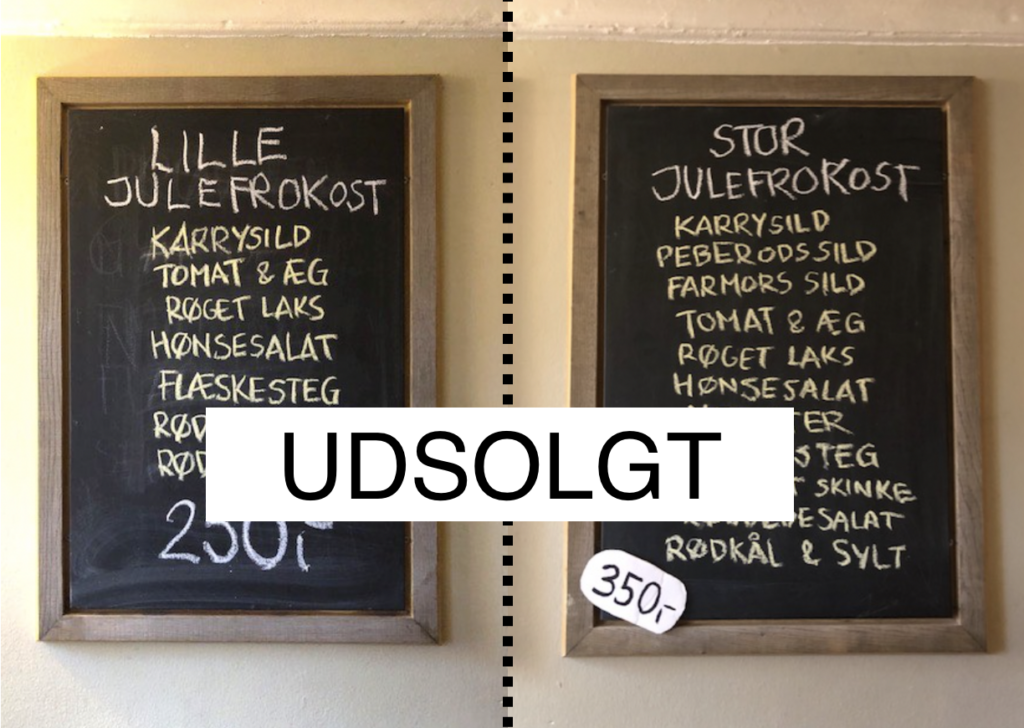 LILLE
JULEFROKOST
KARRYSILD
TOMAT & ÆG
RØGET LAKS
HØNSESALAT
FLÆSKESTEG
250,-
STOR
JULEFROKOST
KARRYSILD
PEBERODSSILD
FARMORS SILD
TOMAT & ÆG
RØGET LAKS
HØNSESALAT
SKINKE
RØDKÅL & SYLT
350,-
UDSOLGT